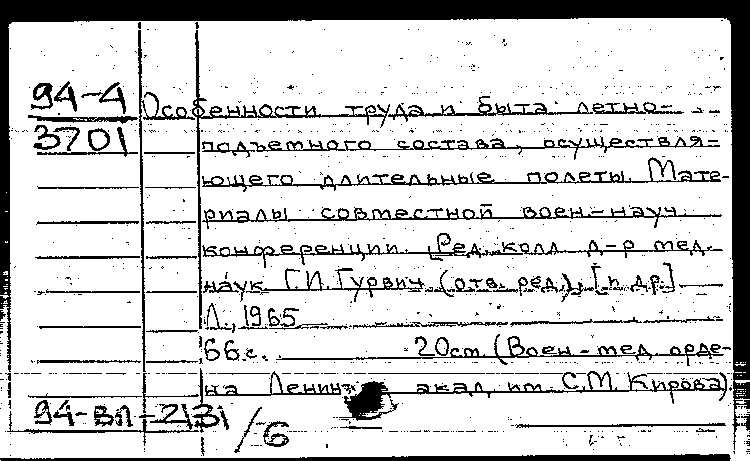 94-4 Особенности труда и быта летно-
3701 подъемного состава, осуществля-
ющего длительные полеты. Мате-
риалы совместной воен-науч.
конференции. [Ред. колл. д-р мед.
наук Г.И. Гурвич (отв. ред.), [и др.]
Л., 1965
66 с. 20см. (Воен-мед. орде-
на Ленина акад. им. С.М. Кирова)
94-вл-2131/6